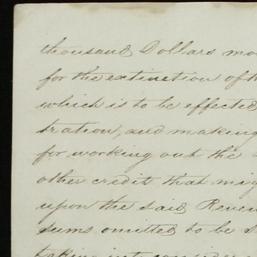 thousand Dollars mo
for the extinction of th
which is to be effected
tration, and making
for working out the
other credit that may
upon the said Reven
sums omitted to be s
taken into consider